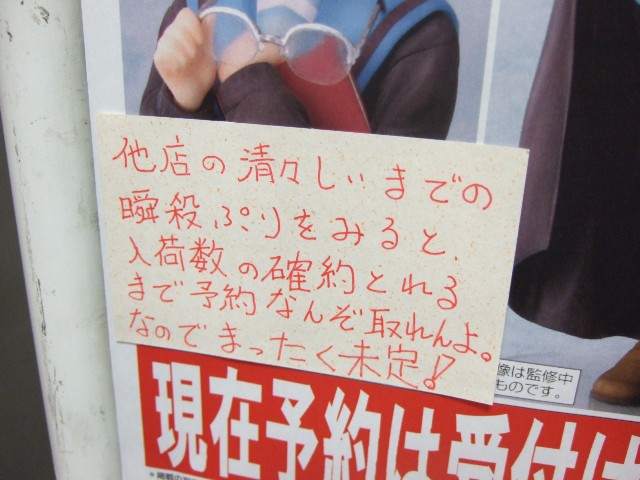 他店の清々しいまでの
瞬殺ぷりをみると、
入荷数の確約とれる
まで予約なんぞ取れんよ。
なのでまったく未定!!
像は監修中
ものです。
現在予約は受付け